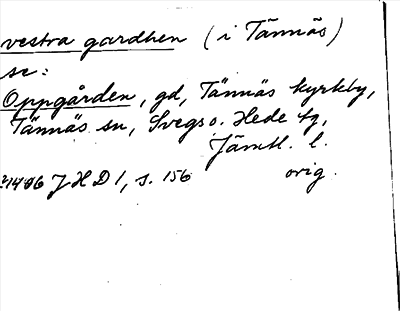 vestra gardhen (i Tännäs)
se:
Oppgården, gd, Tännäs kyrkby,
Tännäs sn, Svegs o. Hede tg,
Jämtl. l.
1486 JHD 1, s. 156 orig.